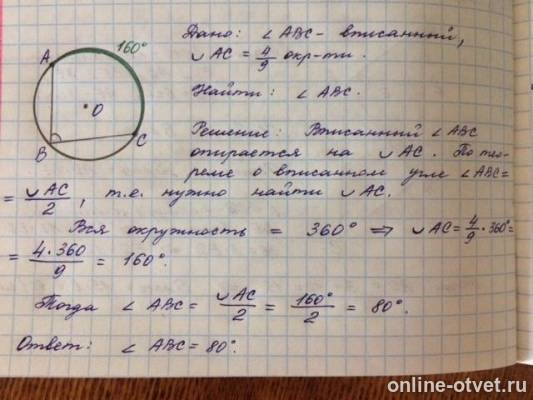 160°
A
O
B
C
Дано: ∠ABC - вписанный,
◡AC = 4/9 окр-ти.
Найти: ∠ABC.
Решение: Вписанный ∠ABC
опирается на ◡AC. По тео-
реме о вписанном угле ∠ABC=
= ◡AC/2, т.е. нужно найти ◡AC.
Вся окружность = 360° ⇒ ◡AC = 4/9 · 360° =
= 4·360/9 = 160°.
Тогда ∠ABC = ◡AC/2 = 160°/2 = 80°.
Ответ: ∠ABC = 80°.
online-otvet.ru